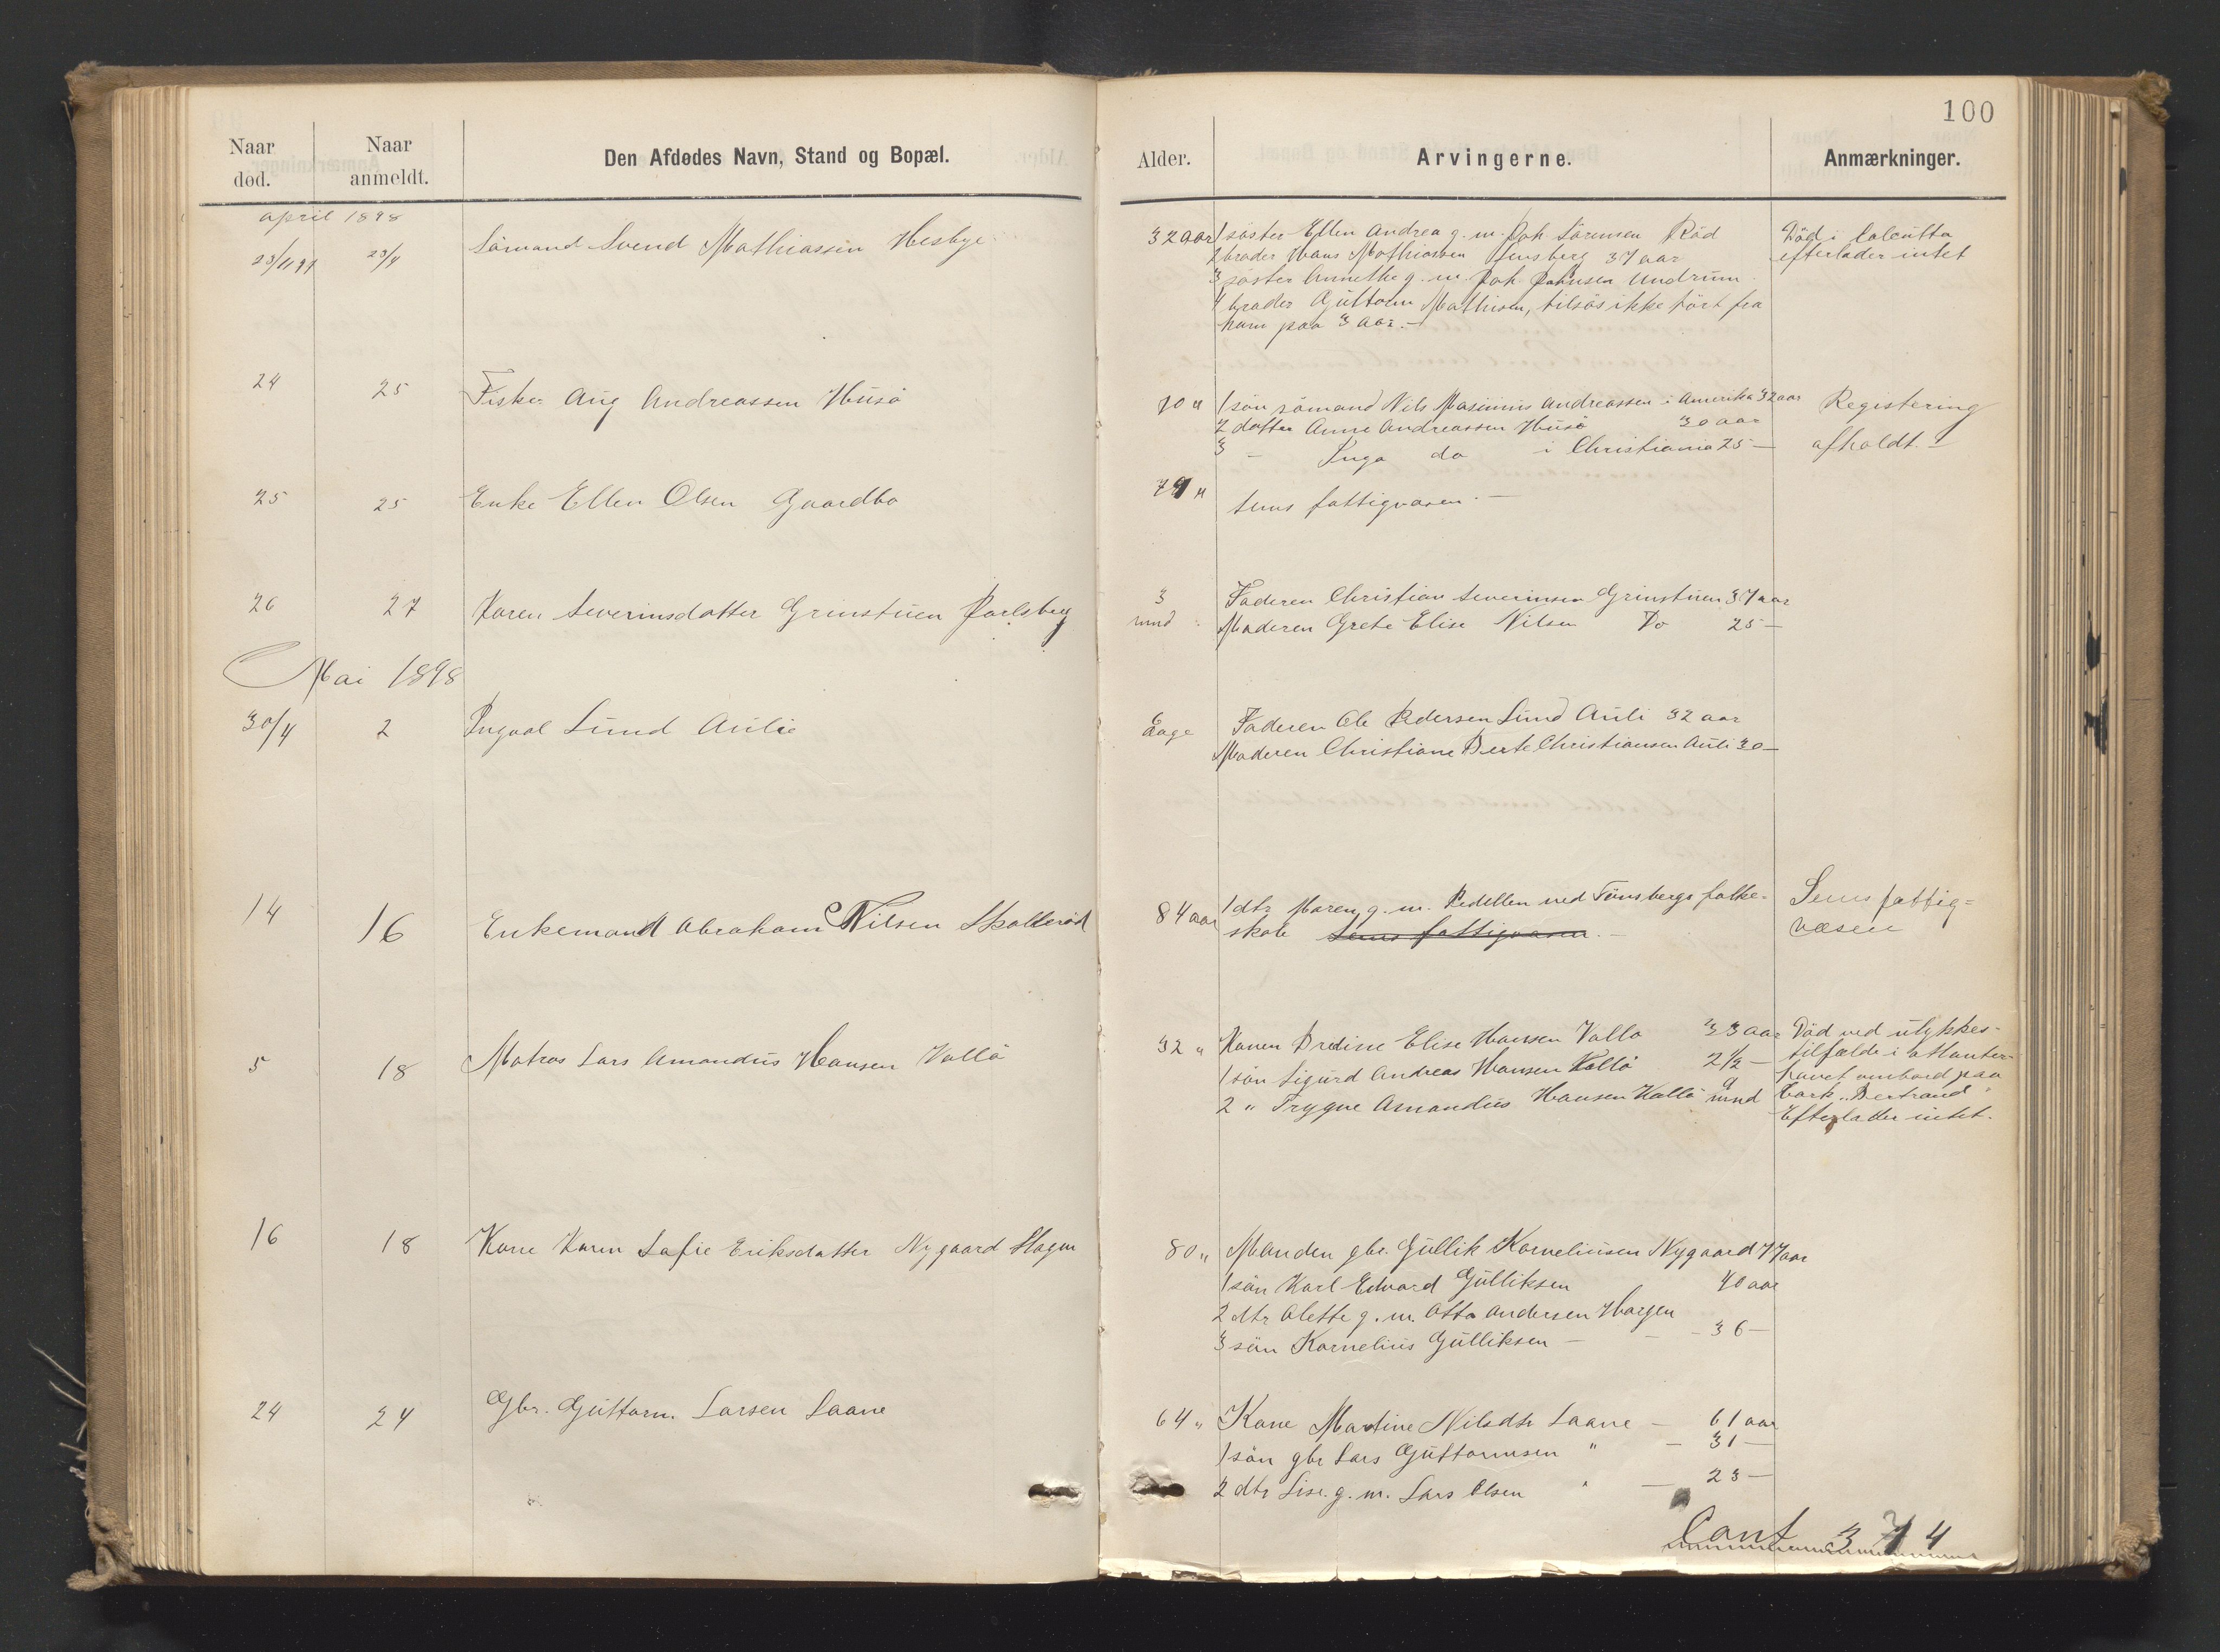 100
Naar død. Naar anmeldt. Den Afdødes Navn, Stand og Bopæl. Alder. Arvingerne. Anmærkninger.
april 1898
23/11 97 23/4 Sömand Svend Mathiassen Hesbye 32 aar 1 söster Ellen Andrea g. m. Joh. Sörensen Röd Död i Calcutta
2 broder Hans Mathiassen Tensberg 37 aar efterlader intet
3 söster Annethe g. m. Joh. Johnsen Undrum
4 broder Guttorm Mathisen, tilsös ikke hört fra
ham paa 3 aar. —
24 25 Fisker Aug Andreassen Husö 70 " 1 sön sömand Nils Masinius Andreassen i Amerika 32 aar Registering
2 datter Anne Andreassen Husö 30 aar
3 - Inga do i Christiania 25 — afholdt.
25 25 Enke Ellen Olsen Gaardbo " Sems fattigvæsen. —
26 27 Karen Severinsdatter Grinstuen Jarlsberg 3 Faderen Christian Severinsen Grinstuen 37 aar
mnd Moderen Grete Elise Nilsen Do 25 —
Mai 1898
30/4 2 Ingval Lund Aulie 2 Faderen Ole Pedersen Lund Auli 32 aar
dage Moderen Christiane Berte Christiansen Auli 30 —
14 16 Enkemand Abraham Nilsen Skallerød 84 aar 1 dtr Maren g. m. Pedellen ved Tönsbergs folke- Sems fattig=
skole Sems fattigvæsen. — væsen
5 18 Matros Lars Amandus Hansen Vallö 32 " Konen Bredine Elise Hansen Vallö 33 aar Död ved ulykkes-
1 sön Sigurd Andreas Hansen Vallö 2 1/2 — tilfælde i Atlanter-
havet ombord paa
2 " Trygve Amandus Hansen Vallö 9 mnd bark „Bertrand"
Efterlader intet.
16 18 Kone Karen Sofie Eriksdatter Nygaard Slagen 80 " Manden gbr. Gullik Korneliusen Nygaard 77 aar
1 sön Karl Edvard Gulliksen 40 aar
2 dtr Olette g. m. Otto Andersen Horgen
3 sön Kornelius Gulliksen — — - 36 —
24 24 Gbr. Guttorm Larsen Laane 64 " Kone Martine Nilsdtr Laane — 61 aar
1 sön gbr Lars Guttormsen " — 31 —
2 dtr Lise g. m. Lars Olsen " — 23 —
Cont 374